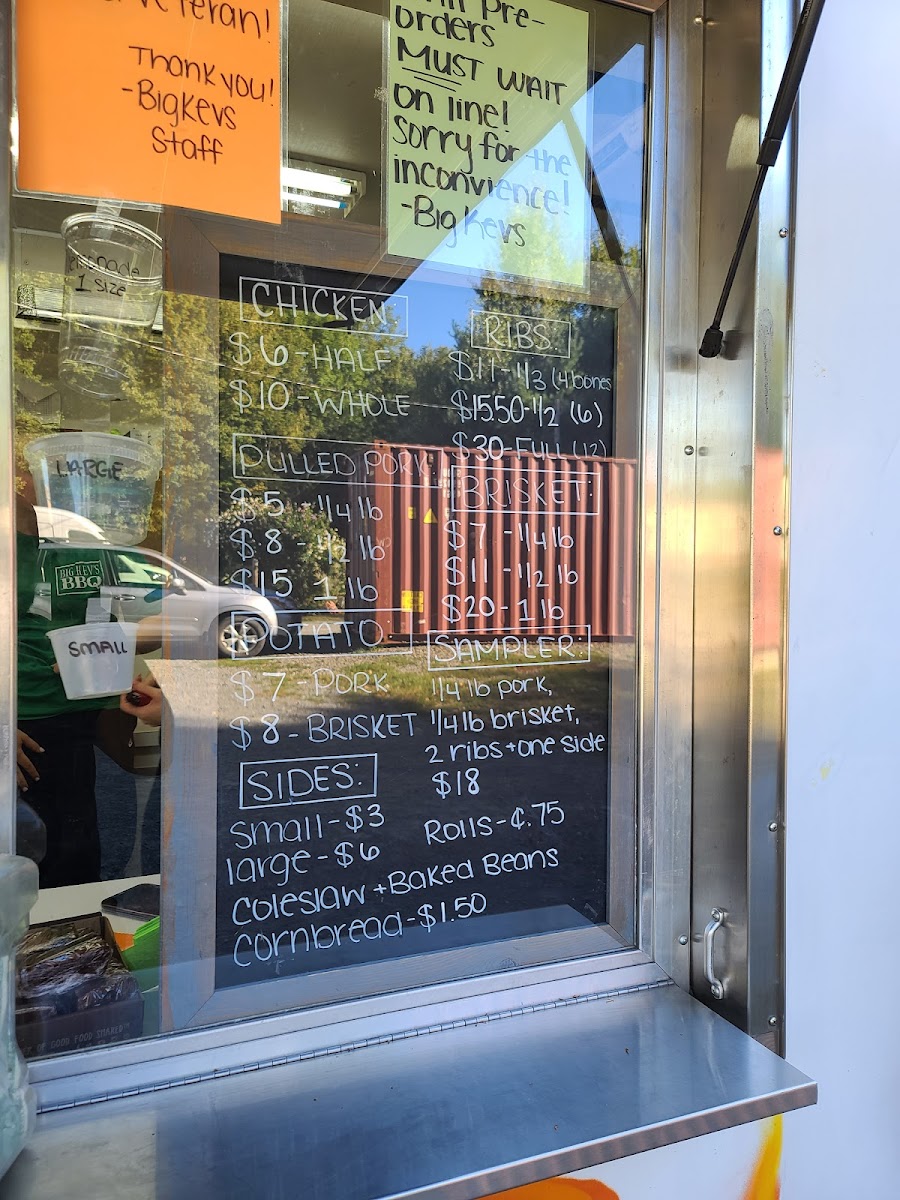 Veteran!
Thank you!
-BigKevs
Staff
Pre-
orders
MUST WAIT
on line!
Sorry for the
inconvience!
-Big Kevs
1 SIZE
LARGE
BIG KEV'S
BBQ
SMALL
CHICKEN
$6-HALF
$10-WHOLE
PULLED PORK
$5-1/4 lb
$8-1/2 lb
$15 1 lb
POTATO:
$7-PORK
$8-BRISKET
SIDES:
small-$3
large-$6
Coleslaw+Baked Beans
Cornbread-$1.50
RIBS:
$11-1/3 (4bones
$15.50-1/2 (6)
$30-Full (12)
BRISKET:
$7-1/4 lb
$11-1/2 lb
$20-1 lb
SAMPLER:
1/4 lb pork,
1/4 lb brisket,
2 ribs+one side
$18
Rolls-¢.75
OF GOOD FOOD SHARED™